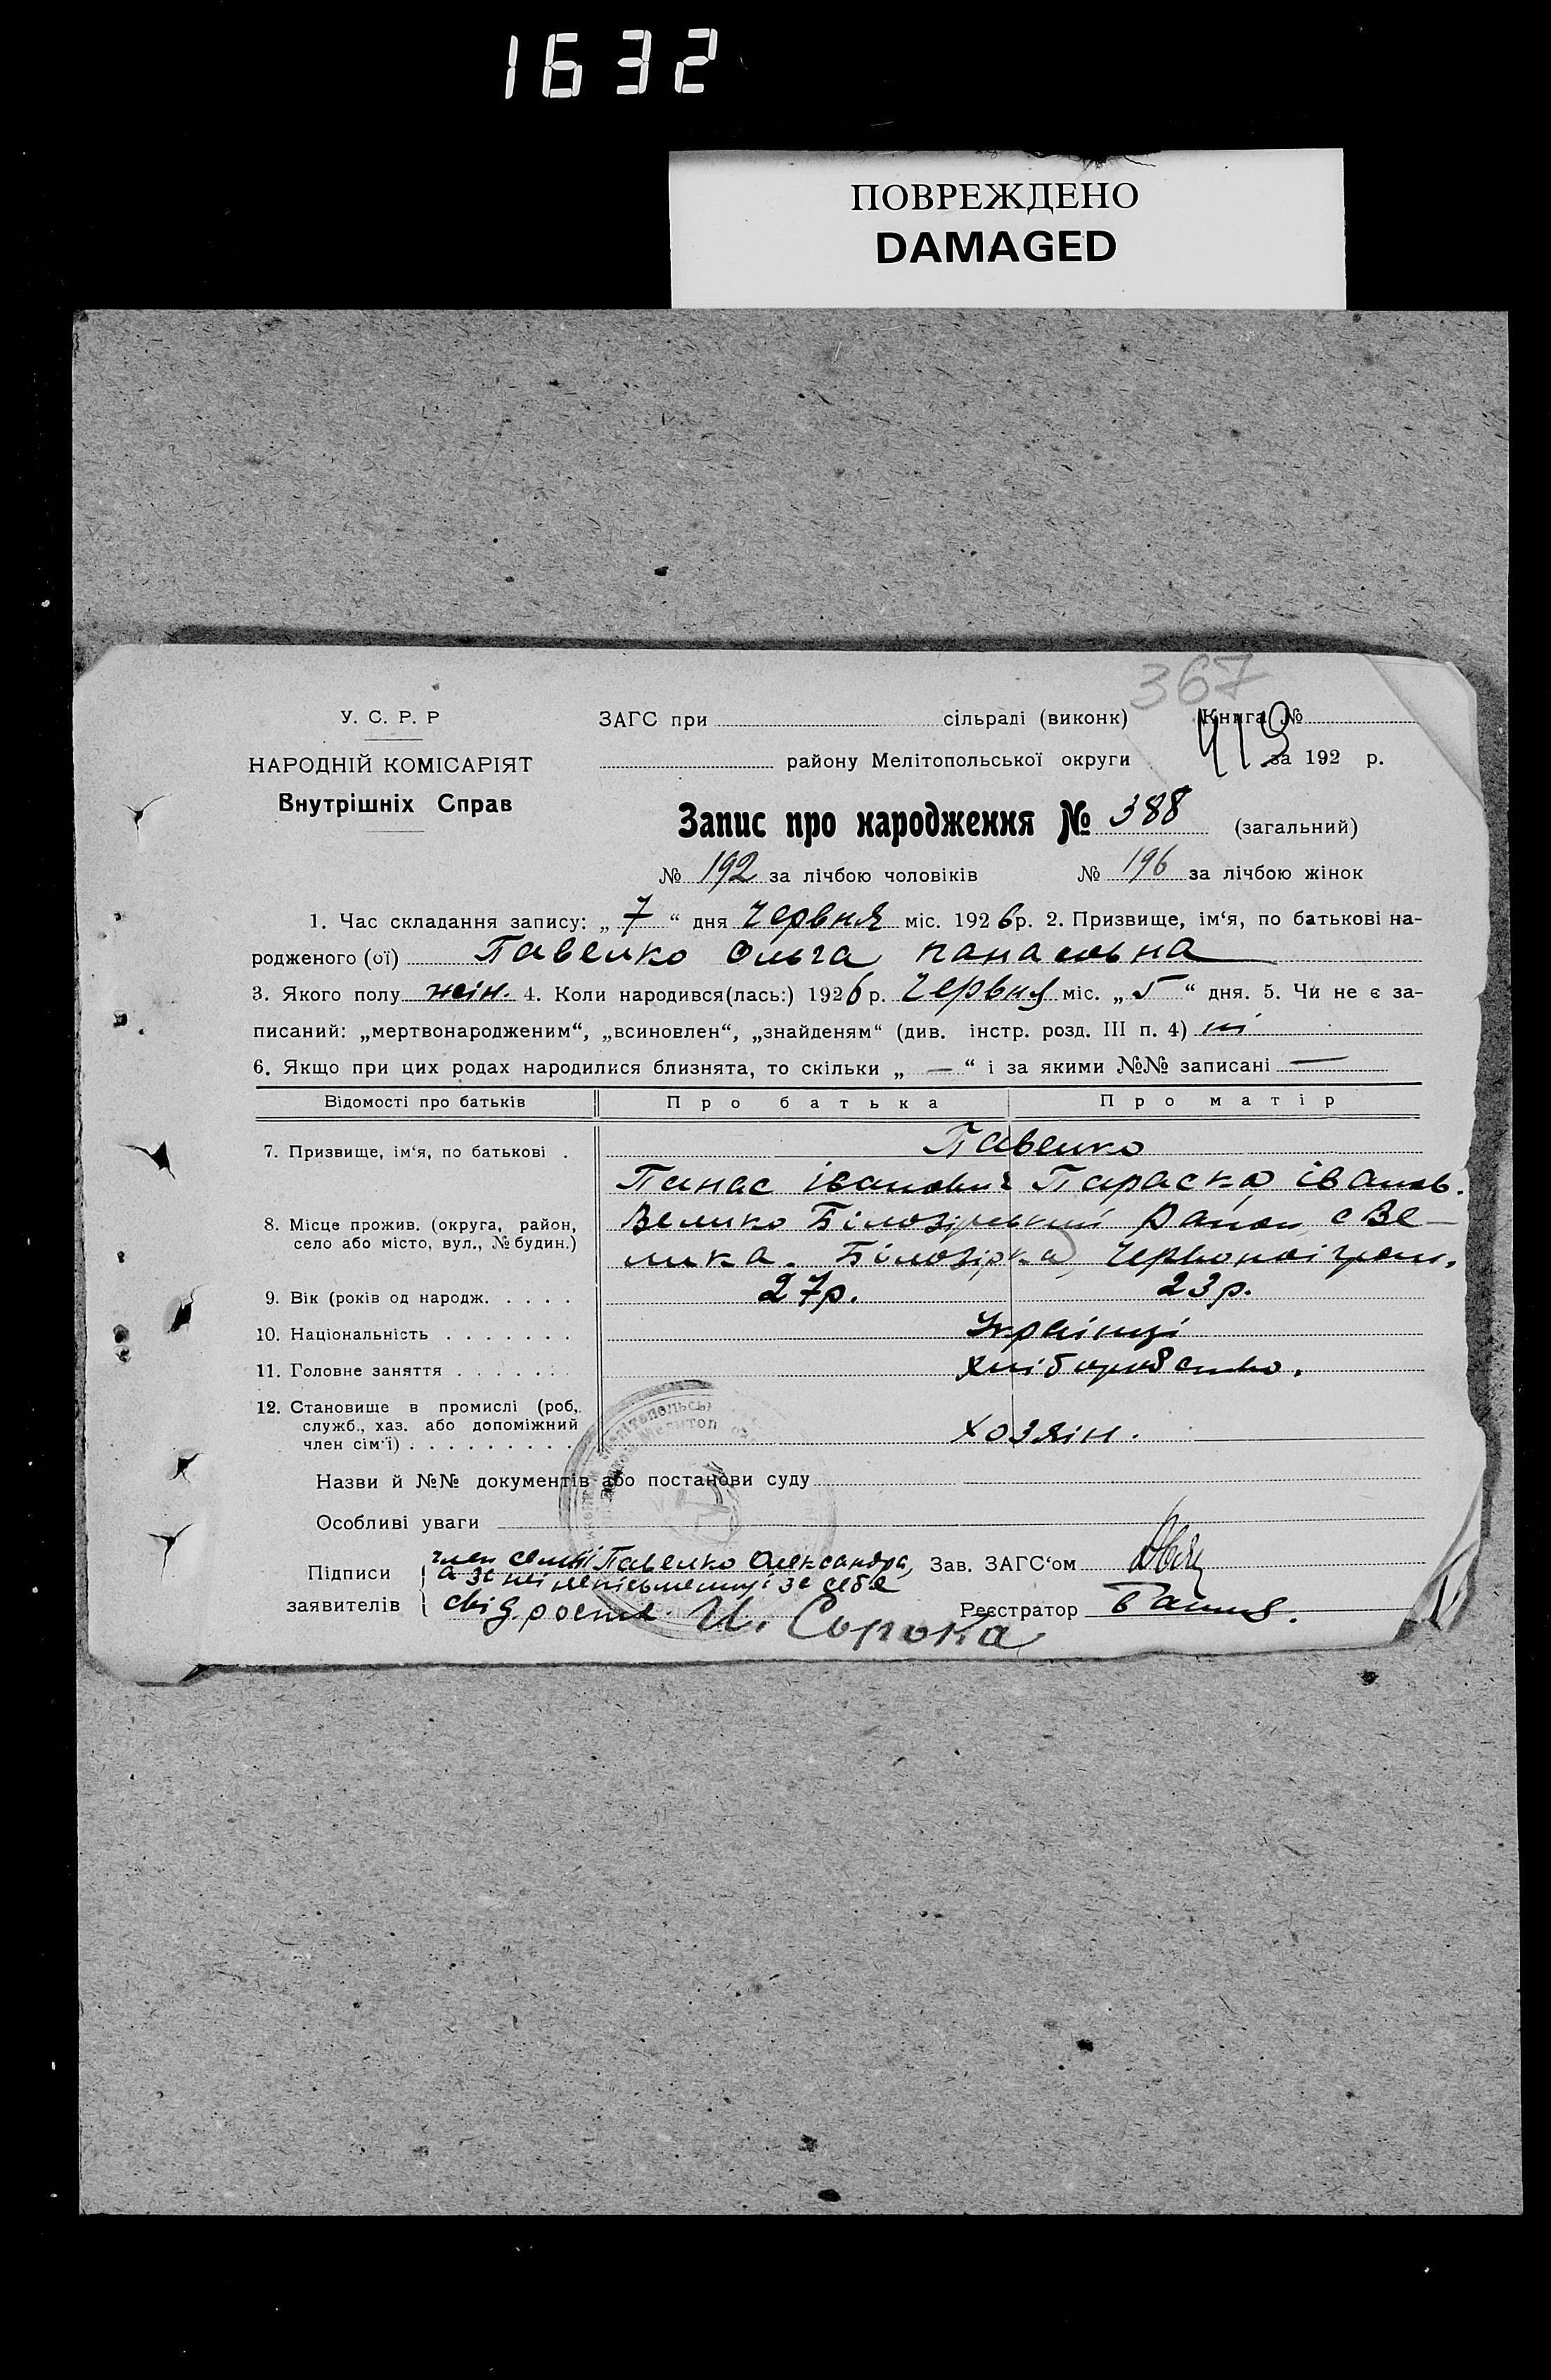 1632
ПОВРЕЖДЕНО
DAMAGED
367
У. С. Р. Р
ЗАГС при сільраді (виконк) Книга №
НАРОДНІЙ КОМІСАРІЯТ
району Мелітопольської округи за 192 р.
419
Внутрішніх Справ
Запис про народження № 388 (загальний)
№ 192 за лічбою чоловіків № 196 за лічбою жінок
1. Час складання запису: „ 7 “ дня Червня міс. 1926 р. 2. Призвище, ім‘я, по батькові на-
родженого (ої) Павенко Ольга панасовна
3. Якого полу жін. 4. Коли народився(лась:) 1926 р. Червня міс. „ 5 “ дня. 5. Чи не є за-
писаний: „мертвонародженим“, „всиновлен“, „знайденям“ (див. інстр. розд. III п. 4) ні
6. Якщо при цих родах народилися близнята, то скільки „ — “ і за якими №№ записані —
Відомості про батьків Про батька Про матір
7. Призвище, ім‘я, по батькові . Павенко
Панас іванович Параска іванов.
8. Місце прожив. (округа, район, Велико Білозірський район с Ве-
село або місто, вул., № будин.) лика. Білозірка,
9. Вік (років од народж. . . . . 27р. 23р.
10. Національність . . . . . . . Українці
11. Головне заняття . . . . . . . хліборобство.
12. Становище в промислі (роб,.
служб., хаз. або допоміжний
член сім‘ї) . . . . . . . . . . хозяїн.
Назви й №№ документів або постанови суду
Особливі уваги
Підписи член семьї Павенко Олександра, Зав. ЗАГС‘ом
а за неї неписьменну і за себе
заявителів свід. росте. И. Сорока Реєстратор